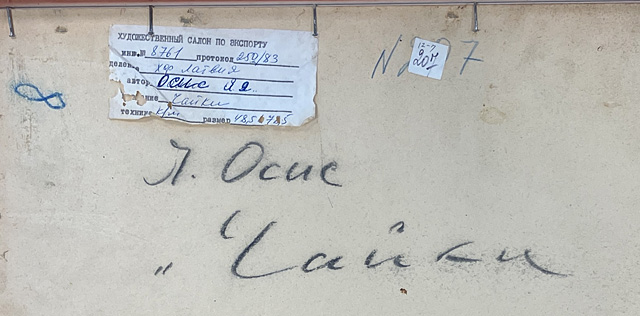 ХУДОЖЕСТВЕННЫЙ САЛОН ПО ЭКСПОРТУ
инв.№ 8761 протокол 250/83
хф Латвия
автор Осис Я Я.
ние Чайки
техника к/м размер 48,5
12-7
207
N 7
8
Я. Осис
„ Чайки